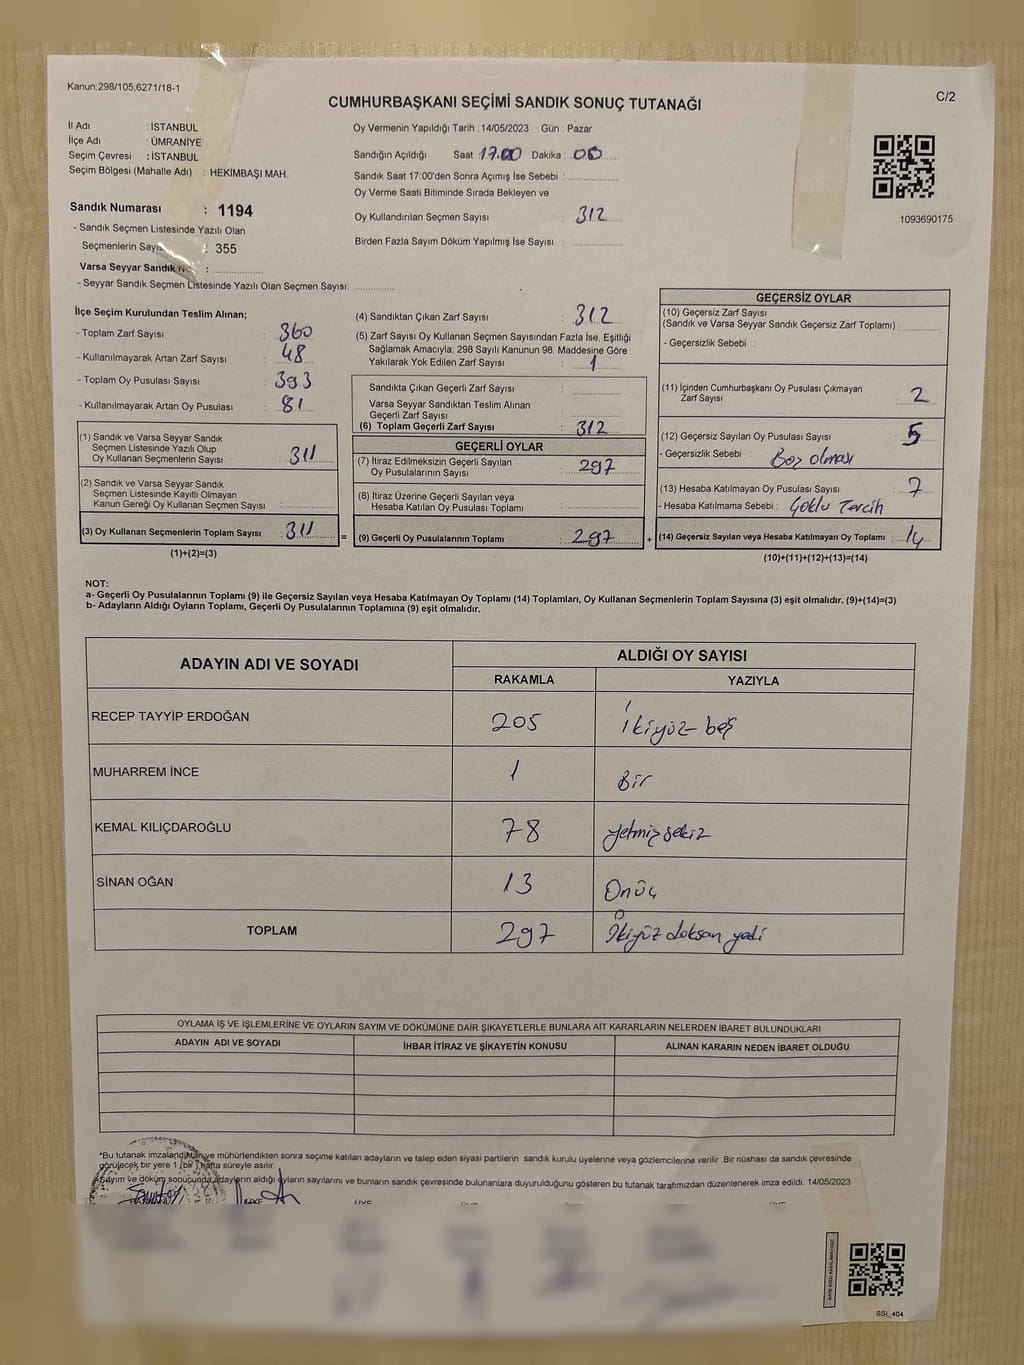 Kanun;298/105;6271/18-1
C/2
CUMHURBAŞKANI SEÇİMİ SANDIK SONUÇ TUTANAĞI
İl Adı : İSTANBUL
İlçe Adı : ÜMRANİYE
Seçim Çevresi : İSTANBUL
Seçim Bölgesi (Mahalle Adı) : HEKİMBAŞI MAH.
Sandık Numarası : 1194
- Sandık Seçmen Listesinde Yazılı Olan
Seçmenlerin Sayı : 355
Varsa Seyyar Sandık :
- Seyyar Sandık Seçmen Listesinde Yazılı Olan Seçmen Sayısı:
Oy Vermenin Yapıldığı Tarih :14/05/2023 Gün : Pazar
Sandığın Açıldığı Saat :17.00 Dakika : 00
Sandık Saat 17:00'den Sonra Açımış İse Sebebi :
Oy Verme Saati Bitiminde Sırada Bekleyen ve
Oy Kullandırılan Seçmen Sayısı : 312
Birden Fazla Sayım Döküm Yapılmış İse Sayısı :
1093690175
İlçe Seçim Kurulundan Teslim Alınan;
- Toplam Zarf Sayısı : 360
- Kullanılmayarak Artan Zarf Sayısı : 48
- Toplam Oy Pusulası Sayısı : 393
- Kullanılmayarak Artan Oy Pusulası : 81
(1) Sandık ve Varsa Seyyar Sandık
Seçmen Listesinde Yazılı Olup
Oy Kullanan Seçmenlerin Sayısı : 311
(2) Sandık ve Varsa Seyyar Sandık
Seçmen Listesinde Kayıtlı Olmayan
Kanun Gereği Oy Kullanan Seçmen Sayısı :
(3) Oy Kullanan Seçmenlerin Toplam Sayısı : 311
(1)+(2)=(3)
(4) Sandıktan Çıkan Zarf Sayısı : 312
(5) Zarf Sayısı Oy Kullanan Seçmen Sayısından Fazla İse, Eşitliği
Sağlamak Amacıyla; 298 Sayılı Kanunun 98. Maddesine Göre
Yakılarak Yok Edilen Zarf Sayısı : 1
Sandıkta Çıkan Geçerli Zarf Sayısı :
Varsa Seyyar Sandıktan Teslim Alınan
Geçerli Zarf Sayısı :
(6) Toplam Geçerli Zarf Sayısı : 312
GEÇERLİ OYLAR
(7) İtiraz Edilmeksizin Geçerli Sayılan
Oy Pusulalarının Sayısı : 297
(8) İtiraz Üzerine Geçerli Sayılan veya
Hesaba Katılan Oy Pusulası Toplamı :
= (9) Geçerli Oy Pusulalarının Toplamı : 297
GEÇERSİZ OYLAR
(10) Geçersiz Zarf Sayısı
(Sandık ve Varsa Seyyar Sandık Geçersiz Zarf Toplamı) :
- Geçersizlik Sebebi :
(11) İçinden Cumhurbaşkanı Oy Pusulası Çıkmayan
Zarf Sayısı : 2
(12) Geçersiz Sayılan Oy Pusulası Sayısı : 5
- Geçersizlik Sebebi : Boş olması
(13) Hesaba Katılmayan Oy Pusulası Sayısı : 7
- Hesaba Katılmama Sebebi : Çoklu Tercih
+ (14) Geçersiz Sayılan veya Hesaba Katılmayan Oy Toplamı : 14
(10)+(11)+(12)+(13)=(14)
NOT:
a- Geçerli Oy Pusulalarının Toplamı (9) ile Geçersiz Sayılan veya Hesaba Katılmayan Oy Toplamı (14) Toplamları, Oy Kullanan Seçmenlerin Toplam Sayısına (3) eşit olmalıdır. (9)+(14)=(3)
b- Adayların Aldığı Oyların Toplamı, Geçerli Oy Pusulalarının Toplamına (9) eşit olmalıdır.
ADAYIN ADI VE SOYADI ALDIĞI OY SAYISI
RAKAMLA YAZIYLA
RECEP TAYYİP ERDOĞAN 205 İkiyüz beş
MUHARREM İNCE 1 Bir
KEMAL KILIÇDAROĞLU 78 yetmiş sekiz
SİNAN OĞAN 13 Onüç
TOPLAM 297 İkiyüz doksan yedi
OYLAMA İŞ VE İŞLEMLERİNE VE OYLARIN SAYIM VE DÖKÜMÜNE DAİR ŞİKAYETLERLE BUNLARA AİT KARARLARIN NELERDEN İBARET BULUNDUKLARI
ADAYIN ADI VE SOYADI İHBAR İTİRAZ VE ŞİKAYETİN KONUSU ALINAN KARARIN NEDEN İBARET OLDUĞU
*Bu tutanak imzalandıktan ve mühürlendikten sonra seçime katılan adayların ve talep eden siyasi partilerin sandık kurulu üyelerine veya gözlemcilerine verilir. Bir nüshası da sandık çevresinde
görülecek bir yere 1 (bir ) hafta süreyle asılır.
Sayım ve döküm sonucunda adayların aldığı oyların sayılarını ve bunların sandık çevresinde bulunanlara duyurulduğunu gösteren bu tutanak tarafımızdan düzenlenerek imza edildi. 14/05/2023
SSİ_404